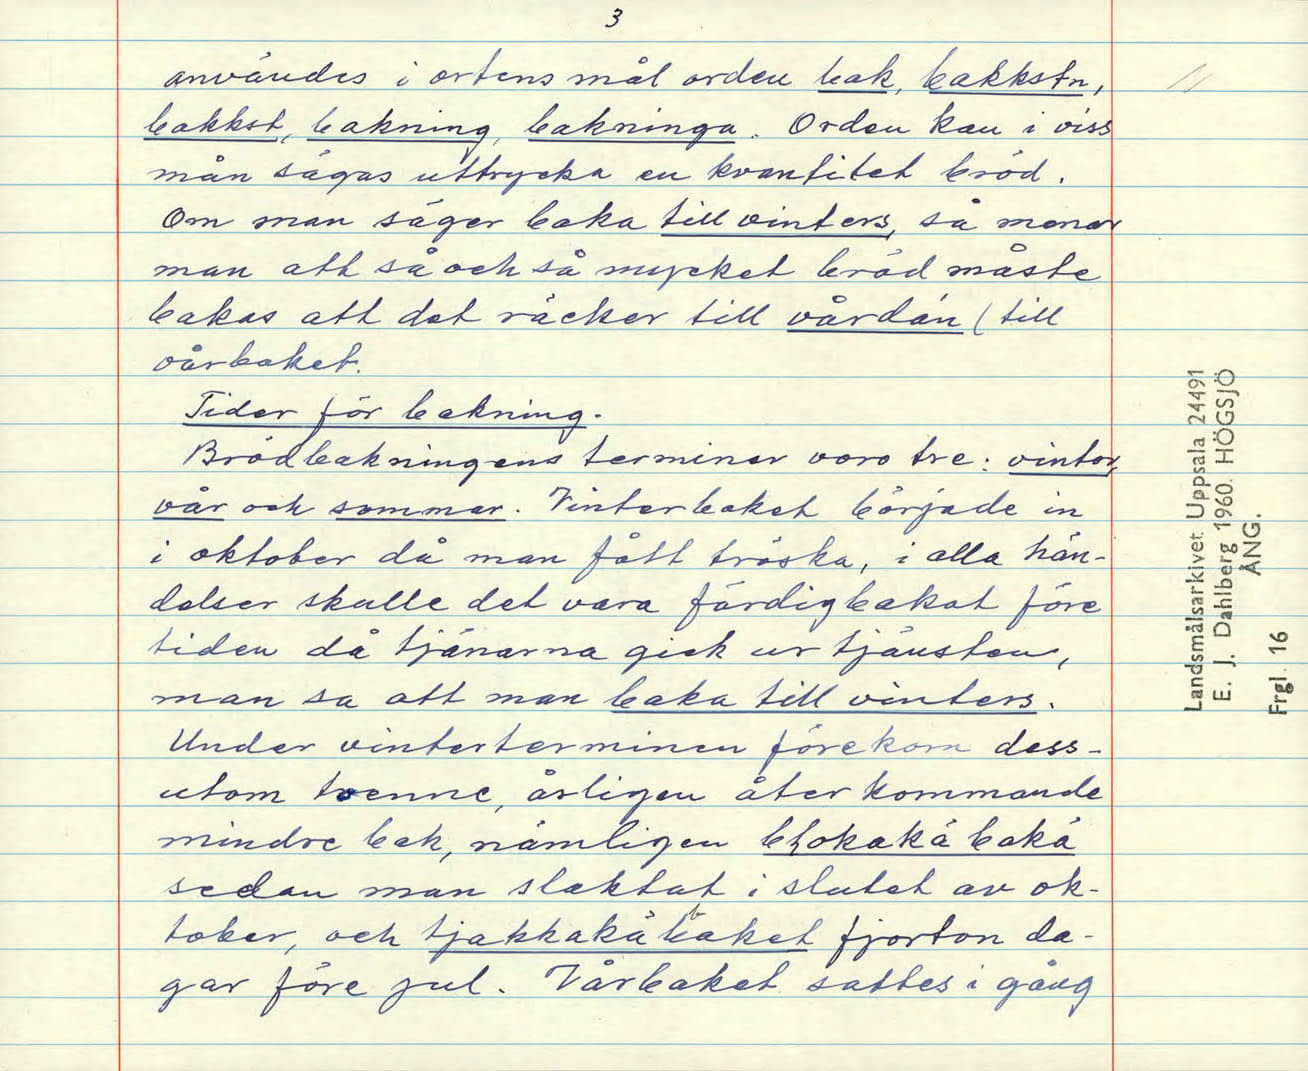 3
användes i ortens mål orden bak, bakkstn,
bakkst, bakning, bakninga. Orden kan i viss
mån sägas uttrycka en kvantitet bröd.
Om man säger baka till vinters, så menar
man att så och så mycket bröd måste
bakas att det räcker till vårdán (till
vårbaket.
Tider för bakning.
Brödbakningens terminer voro tre: vinter,
vår och sommar. Vinterbaket började in
i oktober då man fått tröska, i alla hän-
delser skulle det vara färdigbakat före
tiden då tjänarna gick ur tjänsten,
man sa att man baka till vinters.
Under vinterterminen förekom dess-
utom tvenne, årligen återkommande
mindre bak, nämligen
sedan man slaktat i slutet av ok-
tober, och tjakkakábaket fjorton da-
gar före jul. Vårbaket sattes i gång
Landsmålsarkivet Uppsala 24491
E. J. Dahlberg 1960. HÖGSJÖ
ÅNG.
Frgl. 16